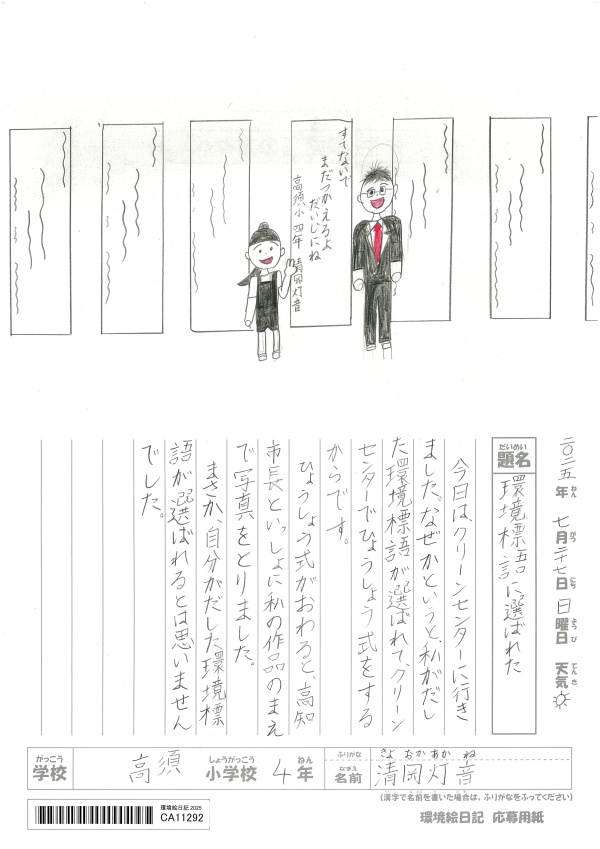 すてないで
まだつかえるよ
だいじにね
高須小 四年 清岡灯音
二〇二五年 七月二十七日 日曜日 天気
ねん がつ にち ようび てんき
だいめい
題名
環境標語に選ばれた
今日は、クリーンセンターに行き
ました。なぜかというと、私がだし
た環境標語が選ばれて、クリーン
センターでひょうしょう式をする
からです。
ひょうしょう式がおわると、高知
市長といっしょに私の作品のまえ
で写真をとりました。
まさか、自分がだした環境標
語が選ばれるとは思いません
でした。
がっこう しょうがっこう ねん
学校 高須 小学校 4年
ふりがな きよ おか あか ね
なまえ
名前 清岡灯音
(漢字で名前を書いた場合は、ふりがなをふってください)
環境絵日記 2025
CA11292
環境絵日記 応募用紙